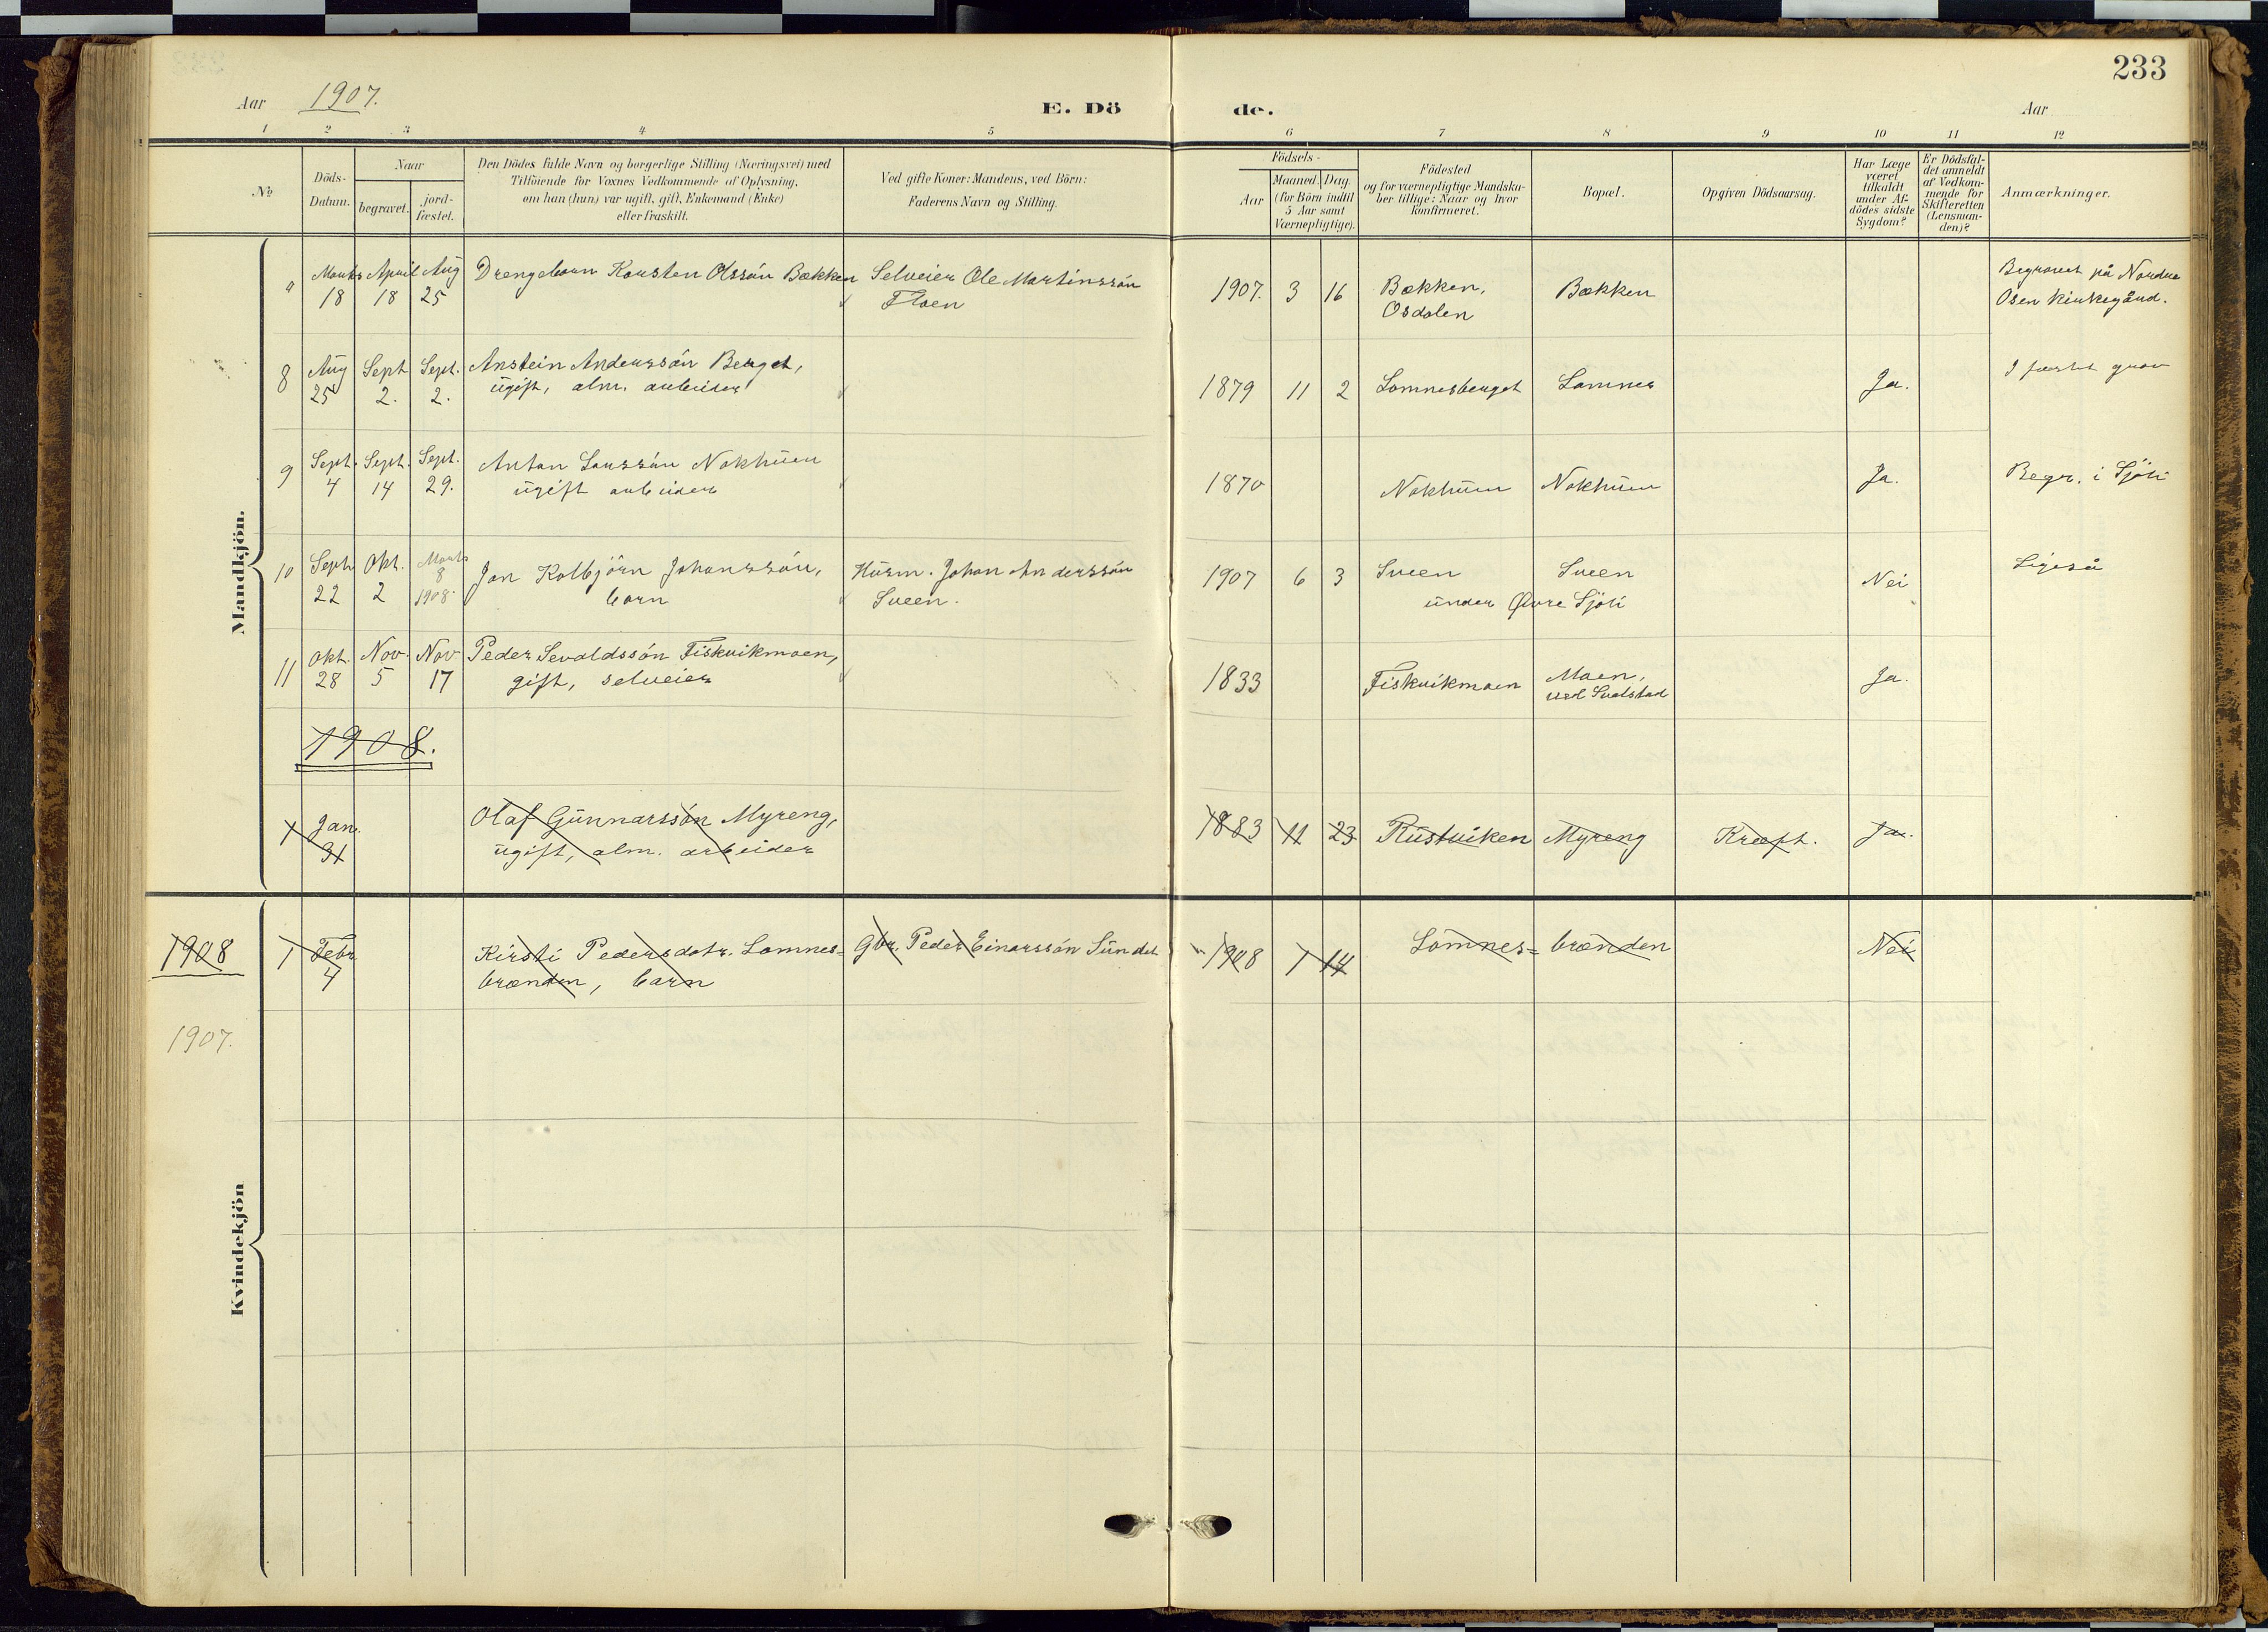 233
Aar 1907. E. Dö de. Aar
1 2 3 4 5 6 7 8 9 10 11 12
No
Döds-
Datum.
Naar
begravet.
jord-
fæstet.
Den Dödes fulde Navn og borgerlige Stilling (Næringsvei) med
Tilföiende for Voxnes Vedkommende af Oplysning,
om han (hun) var ugift, gift, Enkemand (Enke)
eller fraskilt.
Ved gifte Koner: Mandens, ved Börn:
Faderens Navn og Stilling.
Födsels-
Aar
Maaned. Dag.
(for Börn indtil
5 Aar samt
Værnepligtige).
Födested
og for værnepligtige Mandska-
ber tillige: Naar og hvor
konfirmeret.
Bopæl.
Opgiven Dödsaarsag.
Har Læge
været
tilkaldt
under Af-
dödes sidste
Sygdom?
Er Dödsfal-
det anmeldt
af Vedkom-
mende for
Skifteretten
(Lensman-
den)?
Anmærkninger.
Mandkjön.
Marts April Aug Drengebarn Karsten Olssön Bækken Selveier Ole Martinssön
18 18 25 Floen
1907. 3 16 Bækken, Bækken
Osdalen
Begravet på Nordre
Osen kirkegård.
8 Aug Sept Sept. Anstein Anderssön Berget,
25 2. 2. ugift, alm. arbeider
1879 11 2 Lomnesberget Lomnes Ja. I fæstet grav
9 Sept. Sept. Sept. Anton Larssön Nokhuen
4 14 29. ugift arbeider
1870 Nokhuen Nokhuen Ja. Begr. i Sjöli
10 Sept. Okt. Marts Jon Kolbjörn Johanssön, Husm. Johan Anderssön
22 2 8 1908 barn Sveen.
1907 6 3 Sveen Sveen Nei Ligeså
under Øvre Sjöli
11 Okt. Nov. Nov Peder Sevaldssön Fiskvikmoen,
28 5 17 gift, selveier
1833 Fiskvikmoen Moen, Ja.
ved Svalstad
1908.
1 Jan. Olaf Gunnarssön Myreng,
31 ugift, alm. arbeider
1883 11 23 Rustviken Myreng Kræft. Ja.
Kvindekjön
1908 1 Febr. Kirsti Pedersdotr. Lomnes= Gbr. Peder Einarssön Sundet
4 brænden, barn
1908 1 14 Lomnes= brænden Nei
1907.